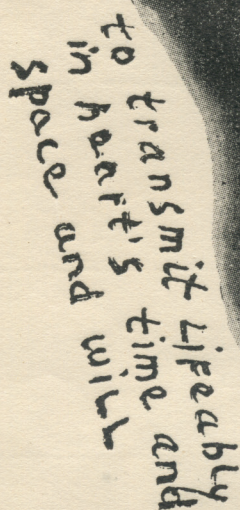 to transmit LiFeably
in heart's time and
space and wiLL